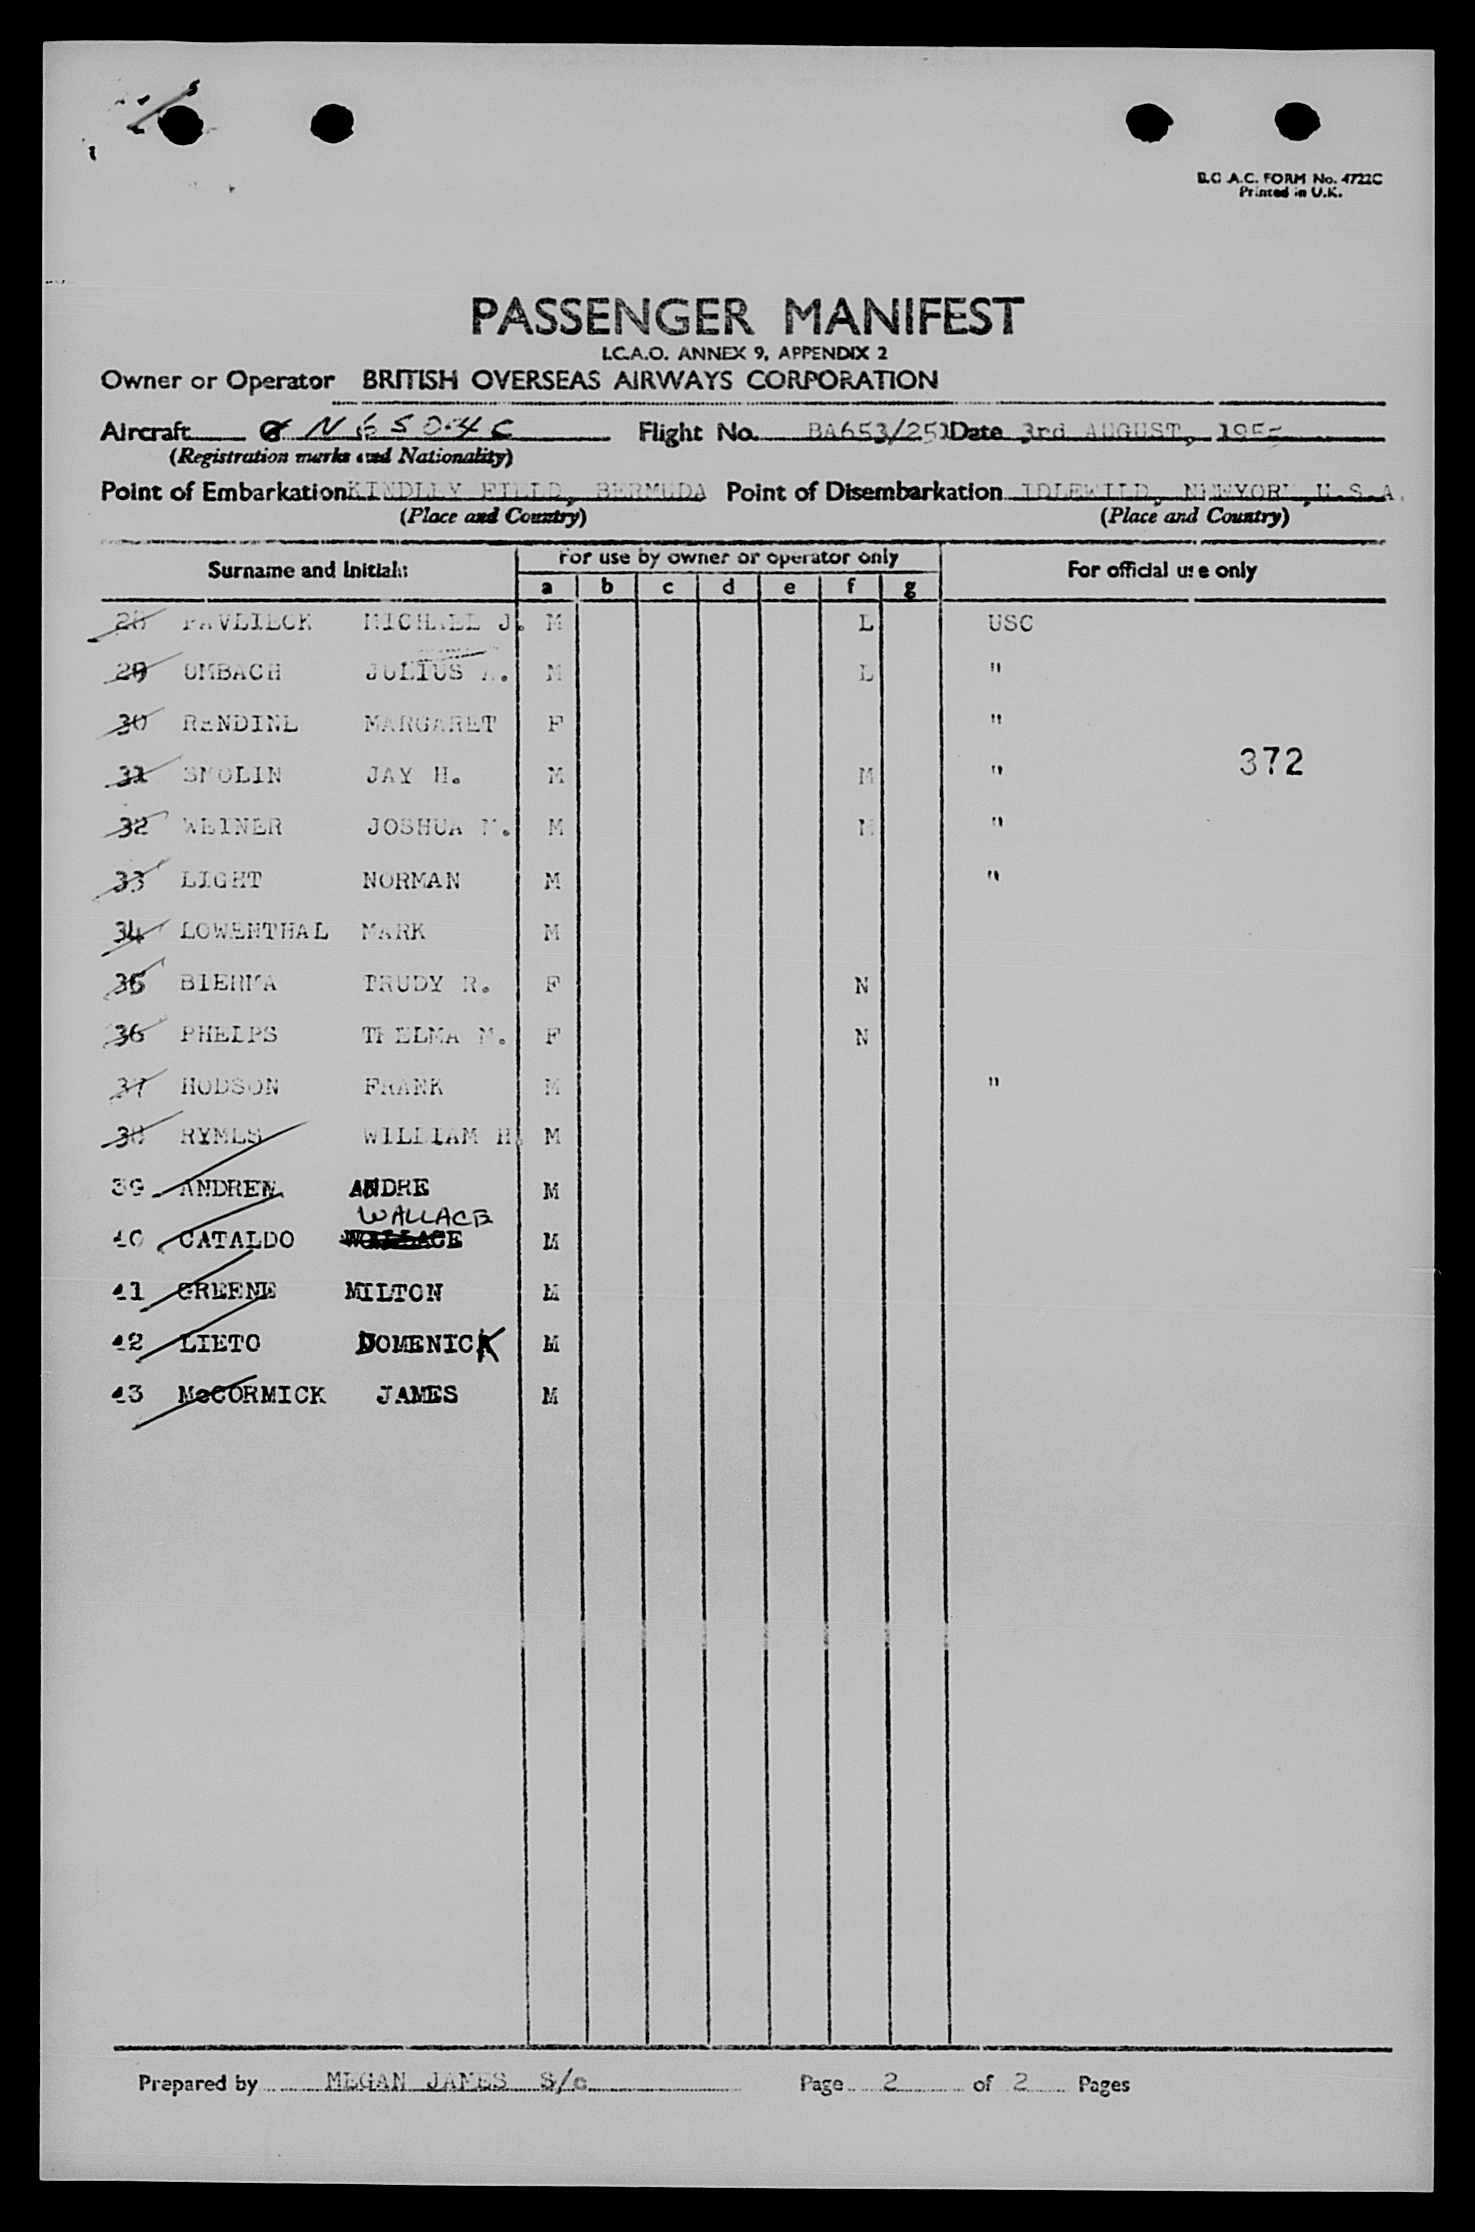 B.O.A.C. FORM No. 4722C
Printed in U.K.
PASSENGER MANIFEST
I.C.A.O. ANNEX 9, APPENDIX 2
Owner or Operator BRITISH OVERSEAS AIRWAYS CORPORATION
Aircraft N 6504C Flight No. BA653/251 Date 3rd AUGUST, 1955
(Registration marks and Nationality)
Point of Embarkation KINDLEY FIELD, BERMUDA Point of Disembarkation IDLEWILD, NEWYORK, U.S.A.
(Place and Country) (Place and Country)
Surname and Initials For use by owner or operator only For official use only
a b c d e f g
28 PAVLIECK MICHAEL J. M L USC
29 OMBACH JULIUS A. M L "
30 RENDINE MARGARET F "
372
31 SMOLIN JAY H. M M "
32 WEINER JOSHUA M. M M "
33 LIGHT NORMAN M "
34 LOWENTHAL MARK M
35 BIERMA TRUDY R. F N
36 PHELPS THELMA M. F N
37 HODSON FRANK M "
38 RYMES WILLIAM H. M
39 ANDREN ANDRE M
WALLACE
40 CATALDO M
41 GREENE MILTON M
42 LIETO DOMENICK M
43 McCORMICK JAMES M
Prepared by MEGAN JAMES S/c Page 2 of 2 Pages